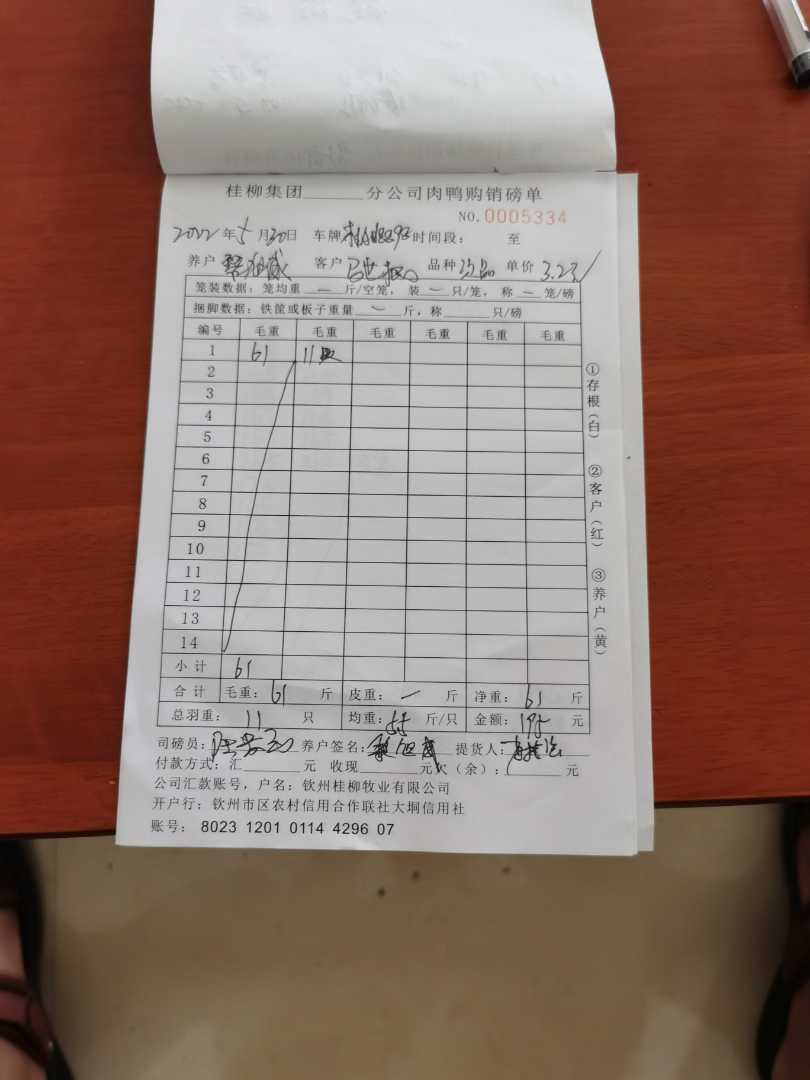 桂柳集团______分公司肉鸭购销磅单
NO.0005334
2022年5月30日 车牌 时间段: 至
养户 客户 品种 次品 单价 3.23/
笼装数据:笼均重 — 斤/空笼,装 — 只/笼,称 — 笼/磅
捆脚数据:铁筐或板子重量 — 斤,称______只/磅
编号 毛重 毛重 毛重 毛重 毛重 毛重
1 61 11
2
3
4
5
6
7
8
9
10
11
12
13
14
小计 61
合计 毛重: 61 斤 皮重: — 斤 净重: 61 斤
总羽重: 11 只 均重: 斤/只 金额: 元
司磅员: 养户签名: 提货人:
付款方式:汇______元 收现______元欠(余):______元
公司汇款账号,户名:钦州桂柳牧业有限公司
开户行:钦州市区农村信用合作联社大垌信用社
账号: 8023 1201 0114 4296 07
①存根(白) ②客户(红) ③养户(黄)